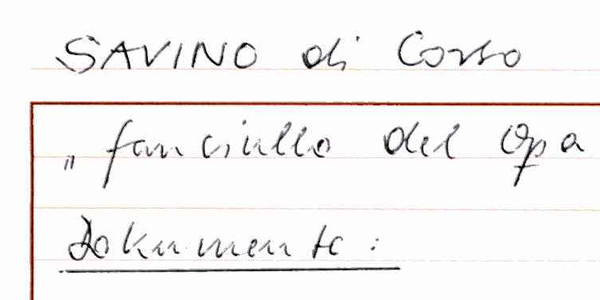 SAVINO di Corso
„ fanciullo del Opa
Dokumente :